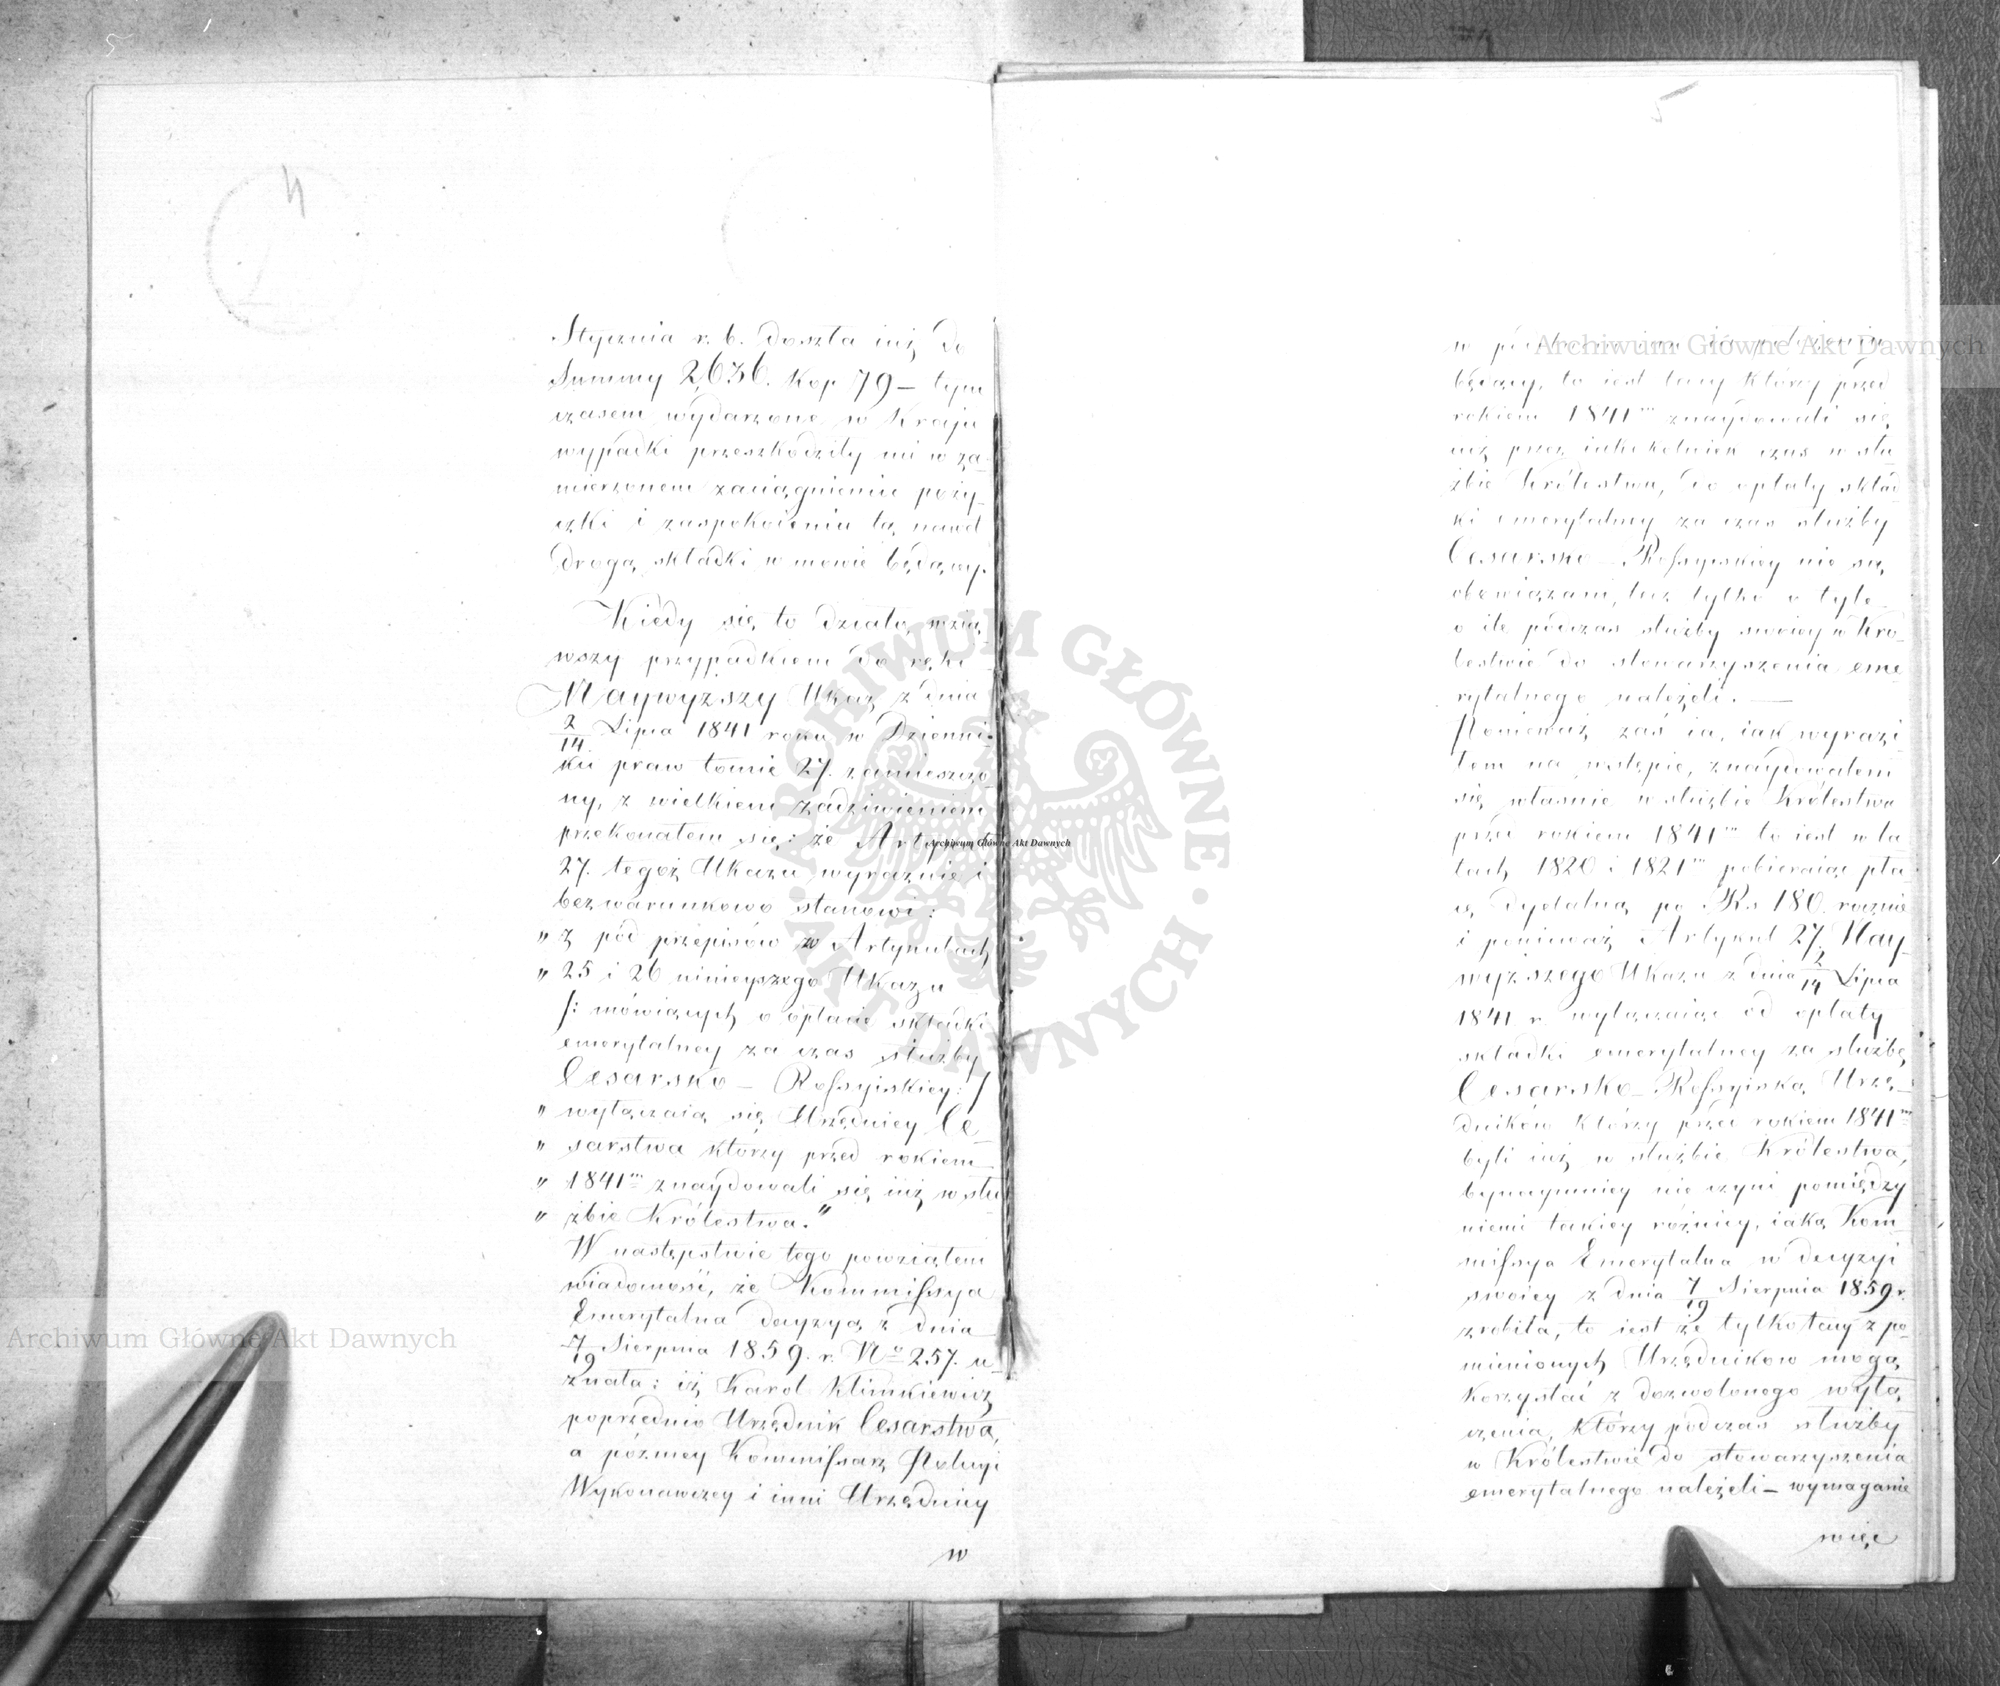 4
Stycznia r. b. doszła iuż do
Summy 2,636. kop 79 – tym
czasem wydarzone w Kraju
wypadki przeszkodziły mi w za-
mierzonem zaciągnieniu poży-
czki i zaspokoieniu tą nawet
drogą składki w mowie będący.
Kiedy się to działo, wzią-
wszy przypadkiem do ręki
Naywyższy Ukaz z dnia
2/14. Lipca 1841 roku w Dzienni-
ku praw tomie 27. zamieszczo
ny, z wielkiem zadziwieniem
przekonałem się: że Artykuł
27. tegoż Ukazu wyraznie i
bezwarunkowo stanowi:
„ z pod przepisów w Artykułach
„ 25 i 26 ninieyszego Ukazu
/: mówiących o opłacie składki
emerytalney za czas służby
Cesarsko – Rossyiskiey: /
„ wyłączaią się Urzędnicy Ce-
„ sarstwa którzy przed rokiem
„ 1841m znaydowali się iuż w słu
„ żbie Królestwa."
W następstwie tego powziąłem
wiadomość, że Kommissya
Emerytalna decyzyą z dnia
7/19 Sierpnia 1859. r. No 257. u-
znała: iż Karol Klimkiewicz
poprzednio Urzędnik Cesarstwa,
a pózniey Kommissarz Policyi
Wykonawczey i inni Urzędnicy
w
5
w podobnem iak ia położeniu
będący, to iest tacy którzy przed
rokiem 1841m znaydowali się
iuż przez iakikolwiek czas w słu
żbie Królestwa, do opłaty skład
ki emerytalney za czas służby
Cesarsko – Rossyiskiey nie są
obowiązani, lecz tylko o tyle
o ile podczas służby swoiey w Kró-
lestwie do stowarzyszenia eme
rytalnego należeli. —
Ponieważ zaś ia, iak wyrazi
łem na wstępie, znaydowałem
się własnie w służbie Królestwa
przed rokiem 1841m to iest w la
tach 1820 i 1821m pobieraiąc pła-
cę dyetalną po Rs 180. rocznie
i ponieważ Artykuł 27. Nay-
wyższego Ukazu z dnia 2/14 Lipca
1841 r. wyłączaiąc od opłaty
składki emerytalney za służbę
Cesarsko – Rossyiską Urzę-
dników którzy przed rokiem 1841m
byli iuż w służbie Królestwa,
bynaymniey nie czyni pomiędzy
niemi takiey różnicy, iaką Kom
missya Emerytalna w decyzyi
swoiey z dnia 7/19 Sierpnia 1859. r.
zrobiła, to iest że tylko tacy z po
mienionych Urzędników mogą
korzystać z dozwolonego wyłą
czenia, którzy podczas służby
w Królestwie do stowarzyszenia
emerytalnego należeli – wymaganie
więc
Archiwum Główne Akt Dawnych
Archiwum Główne Akt Dawnych
Archiwum Główne Akt Dawnych
ARCHIWUM GŁÓWNE · AKT DAWNYCH ·